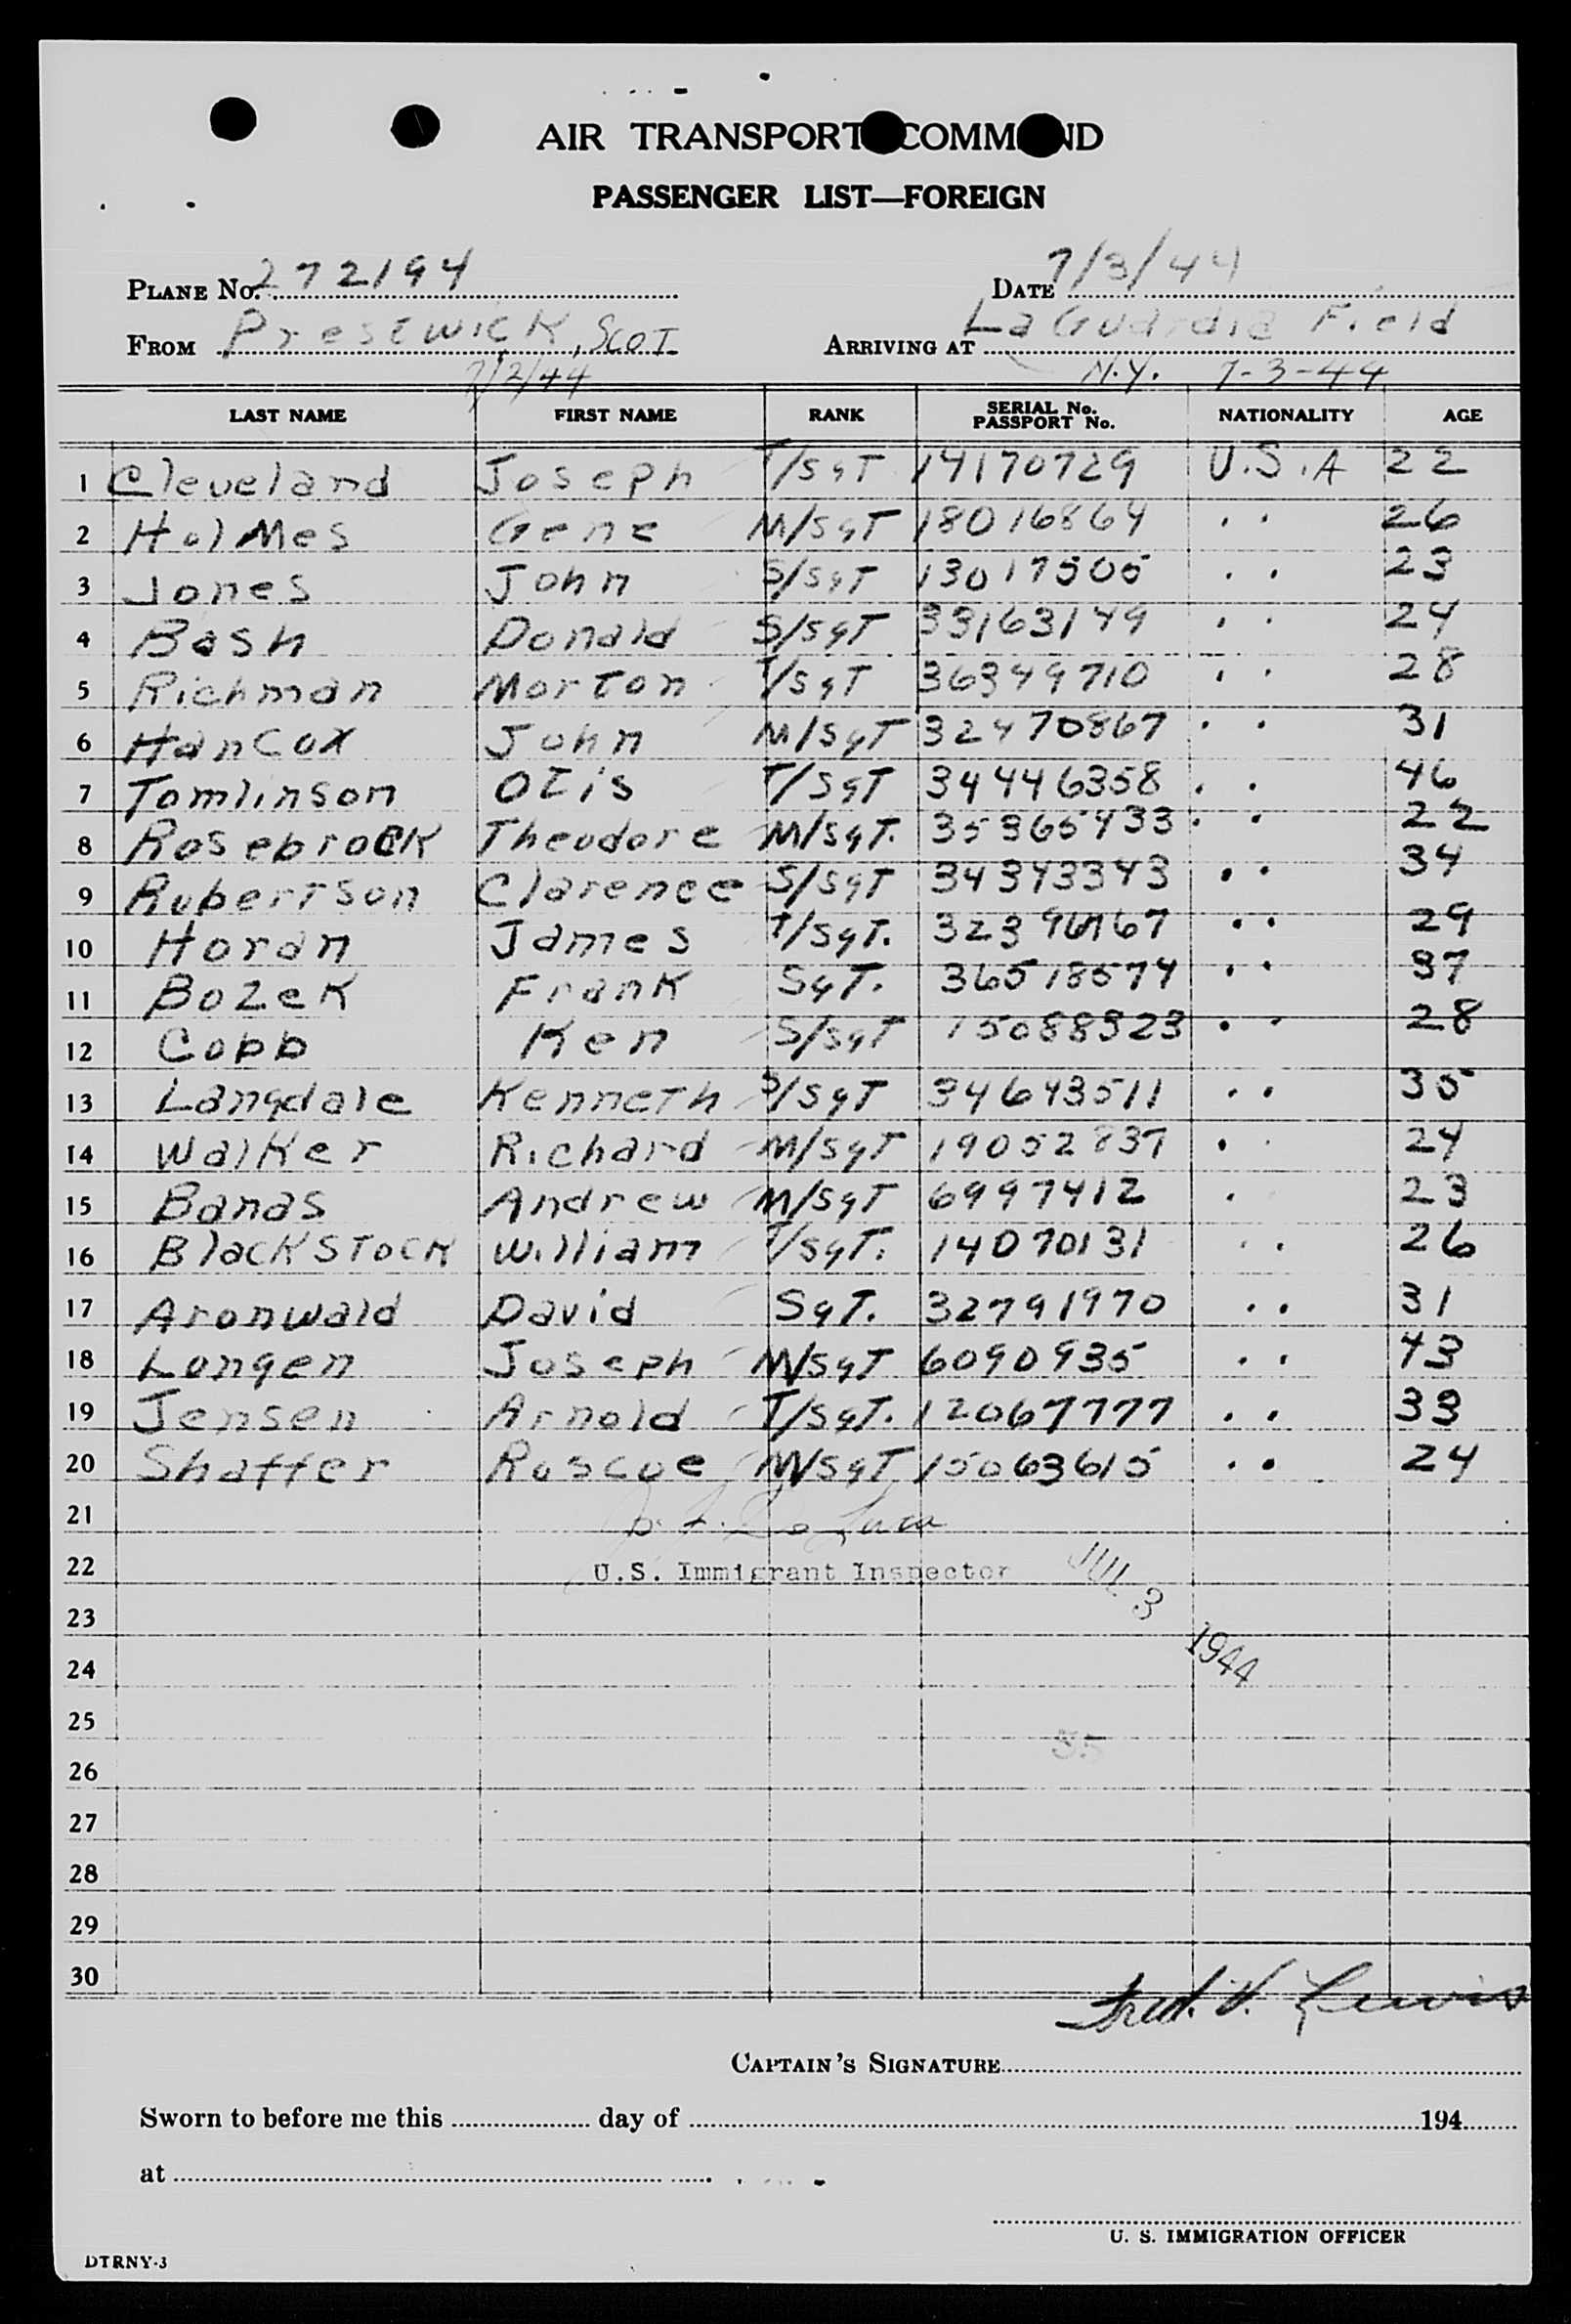 AIR TRANSPORT COMMAND
PASSENGER LIST—FOREIGN
PLANE No. 272194 DATE 7/3/44
FROM Prestwick, SCOT. ARRIVING AT LaGuardia Field
7/2/44 N.Y. 7-3-44
LAST NAME FIRST NAME RANK SERIAL No. PASSPORT No. NATIONALITY AGE
1 Cleveland Joseph T/SgT 14170729 U.S.A 22
2 HolMes Gene M/SgT 18016864 . . 26
3 Jones John S/SgT 13017505 . . 23
4 Bash Donald S/SgT 33163149 . . 24
5 Richman Morton T/SgT 36349710 . . 28
6 HanCox John M/SgT 32470867 . . 31
7 Tomlinson Otis T/SgT 34446358 . . 46
8 Rosebrock Theodore M/SgT. 35365433 . . 22
9 Robertson Clarence S/SgT 34343343 . . 34
10 Horan James T/SgT. . . 29
11 Bozek Frank SgT. 36518574 . . 37
12 Cobb Ken S/SgT 15088323 . . 28
13 Langdale Kenneth S/SgT 34643511 . . 35
14 Walker Richard M/SgT 19052837 . . 24
15 Banas Andrew M/SgT 6997412 . 23
16 BlackStock William T/SgT. 14070131 . . 26
17 Aronwald David SgT. 32791970 . . 31
18 Longen Joseph M/SgT 6090935 . . 43
19 Jensen Arnold T/SgT. 12067777 . . 33
20 Shaffer Roscoe M/SgT 15063615 . . 24
21
22 U.S. Immigrant Inspector JUL 3 1944
23
24
25
26
27
28
29
30
Fred. V. Lewis
CAPTAIN'S SIGNATURE
Sworn to before me this day of 194
at
U. S. IMMIGRATION OFFICER
DTRNY-3